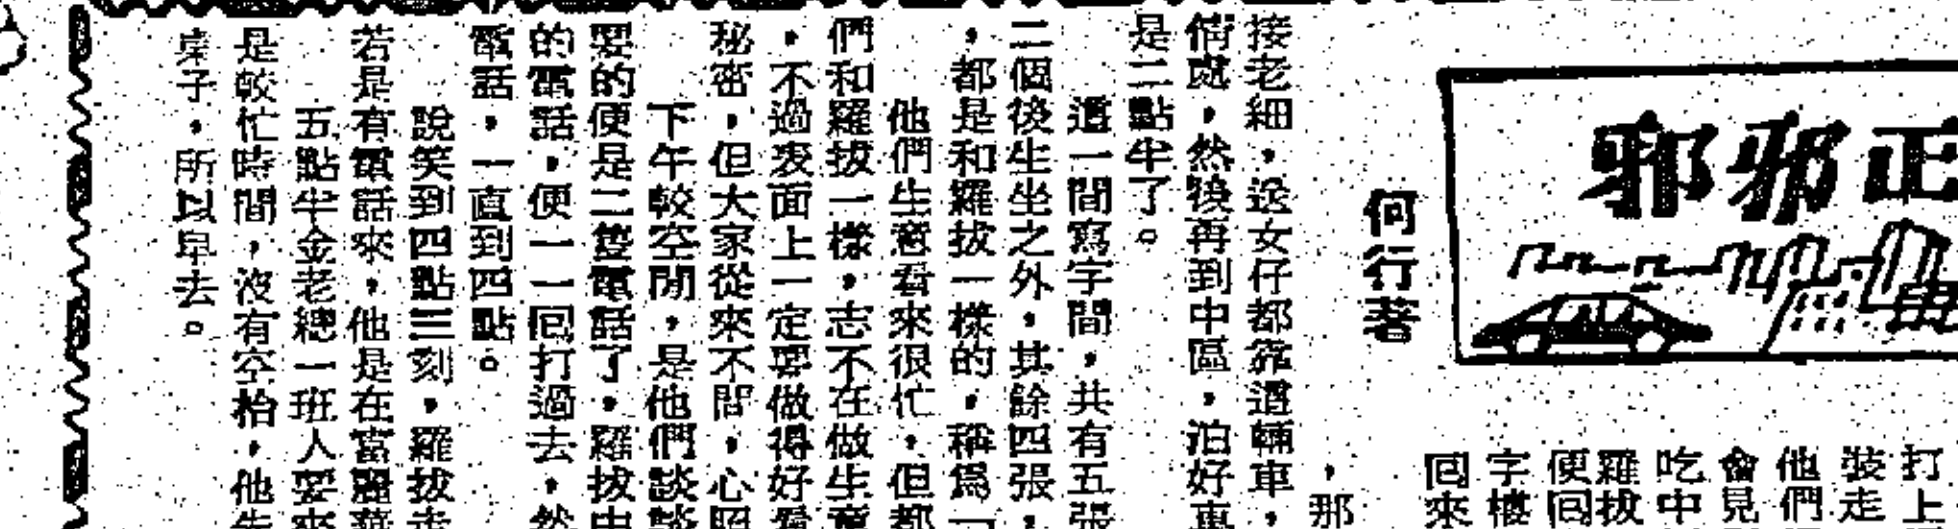 正邪邪
何行著
打上
裝走
他們
會見
吃中
羅拔
便同
字樓
回來
，那
接老細，送女仔都靠這輛車，
俏處，然後再到中區，泊好車
是二點半了。
這一間寫字間，共有五張
二個後生坐之外，其餘四張，
，都是和羅拔一樣的，稱爲「
他們生意看來很忙，但都
們和羅拔一樣，志不在做生意
，不過表面上一定要做得好看
秘密，但大家從來不問，心照
下午較空閒，是他們談談
要的便是二隻電話了，羅拔由
的電話，便一一回打過去，然
電話，一直到四點。
說笑到四點三刻，羅拔走
若是有電話來，他是在富麗華
五點半金老總一班人要來
是較忙時間，沒有空枱，他先
桌子，所以早去。